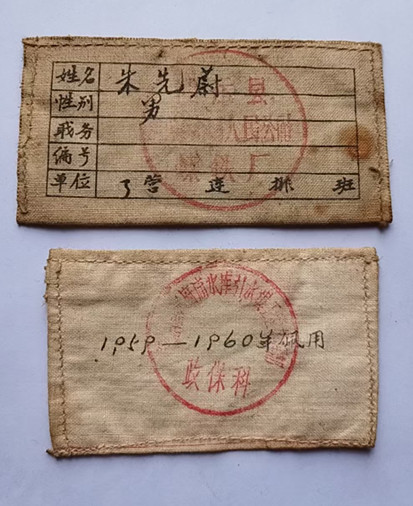 姓名 朱先蔚
性别 男
职务
编号
单位 3营 连 排 班
县
人民公社
厂
水库引水
1959—1960年佩用
政保科